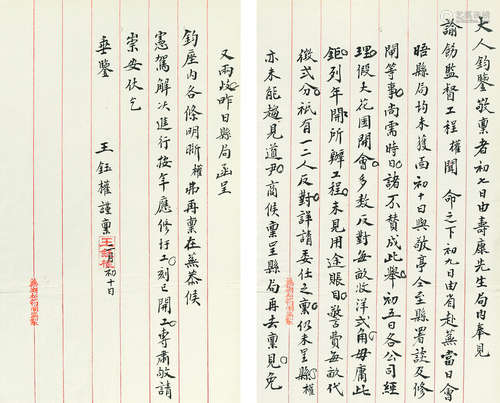 大人鈞鑒敬稟者初七日由壽康先生局內奉見
諭飭監督工程權聞 命之下初九日由省赴蕪當日會
晤縣局均未獲面初十日與敬亭仝至縣署談及修
閘等事尚需時日諸不贊成此舉初五日各公司經
理假大花園開會多数反對每畝收洋弍角毋庸此
鉅列年開所辦工程未見用途賬目警言費每畝代
徵弍分祇有一二人反對詳請委仕之稟仍未呈縣權
亦未能趨見道尹商候稟呈縣局再去稟見免
又兩歧昨日縣局函呈
鈞座內各條明晰權弗再稟在蕪恭候
憲駕解決進行按年應修行工刻已開工專肅敬請
崇安伏乞
垂鑒 王鈺權謹稟 二月初十日